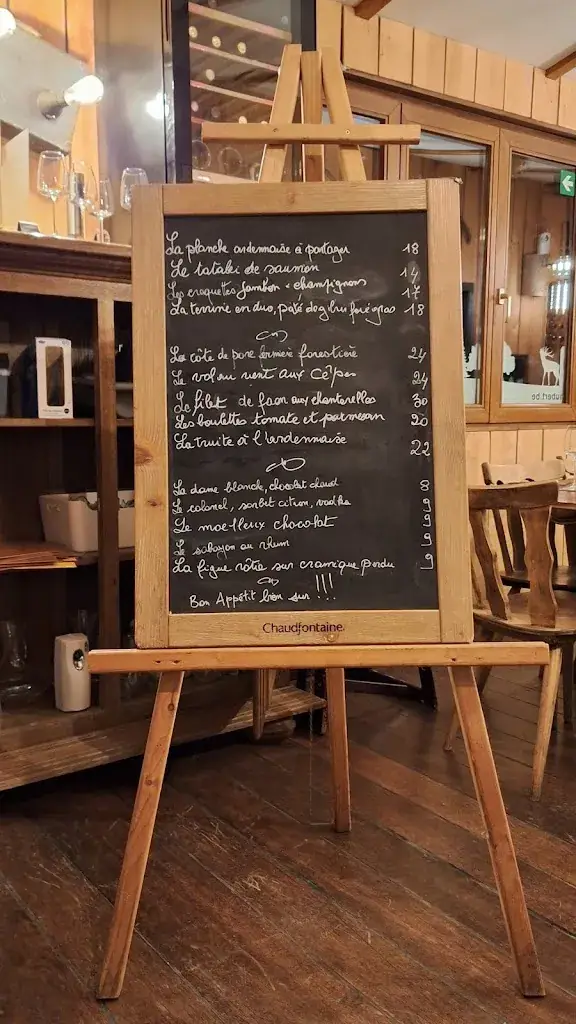 La planche ardennaise à partager 18
Le tataki de saumon 14
Les croquettes jambon + champignons 17
La terrine en duo, pâté de gibier foie gras 18
La côte de porc fermière forestière 24
Le vol au vent aux Cêpes 24
Le filet de faon aux chanterelles 30
Les boulettes tomate et parmesan 20
La truite à l'ardennaise 22
La dame blanche, chocolat chaud 8
Le colonel, sorbet citron, vodka 9
Le moelleux chocolat 9
Le sabayon au rhum 9
La figue rôtie sur cramique perdu 9
Bon Appétit bien sur !!!
Chaudfontaine